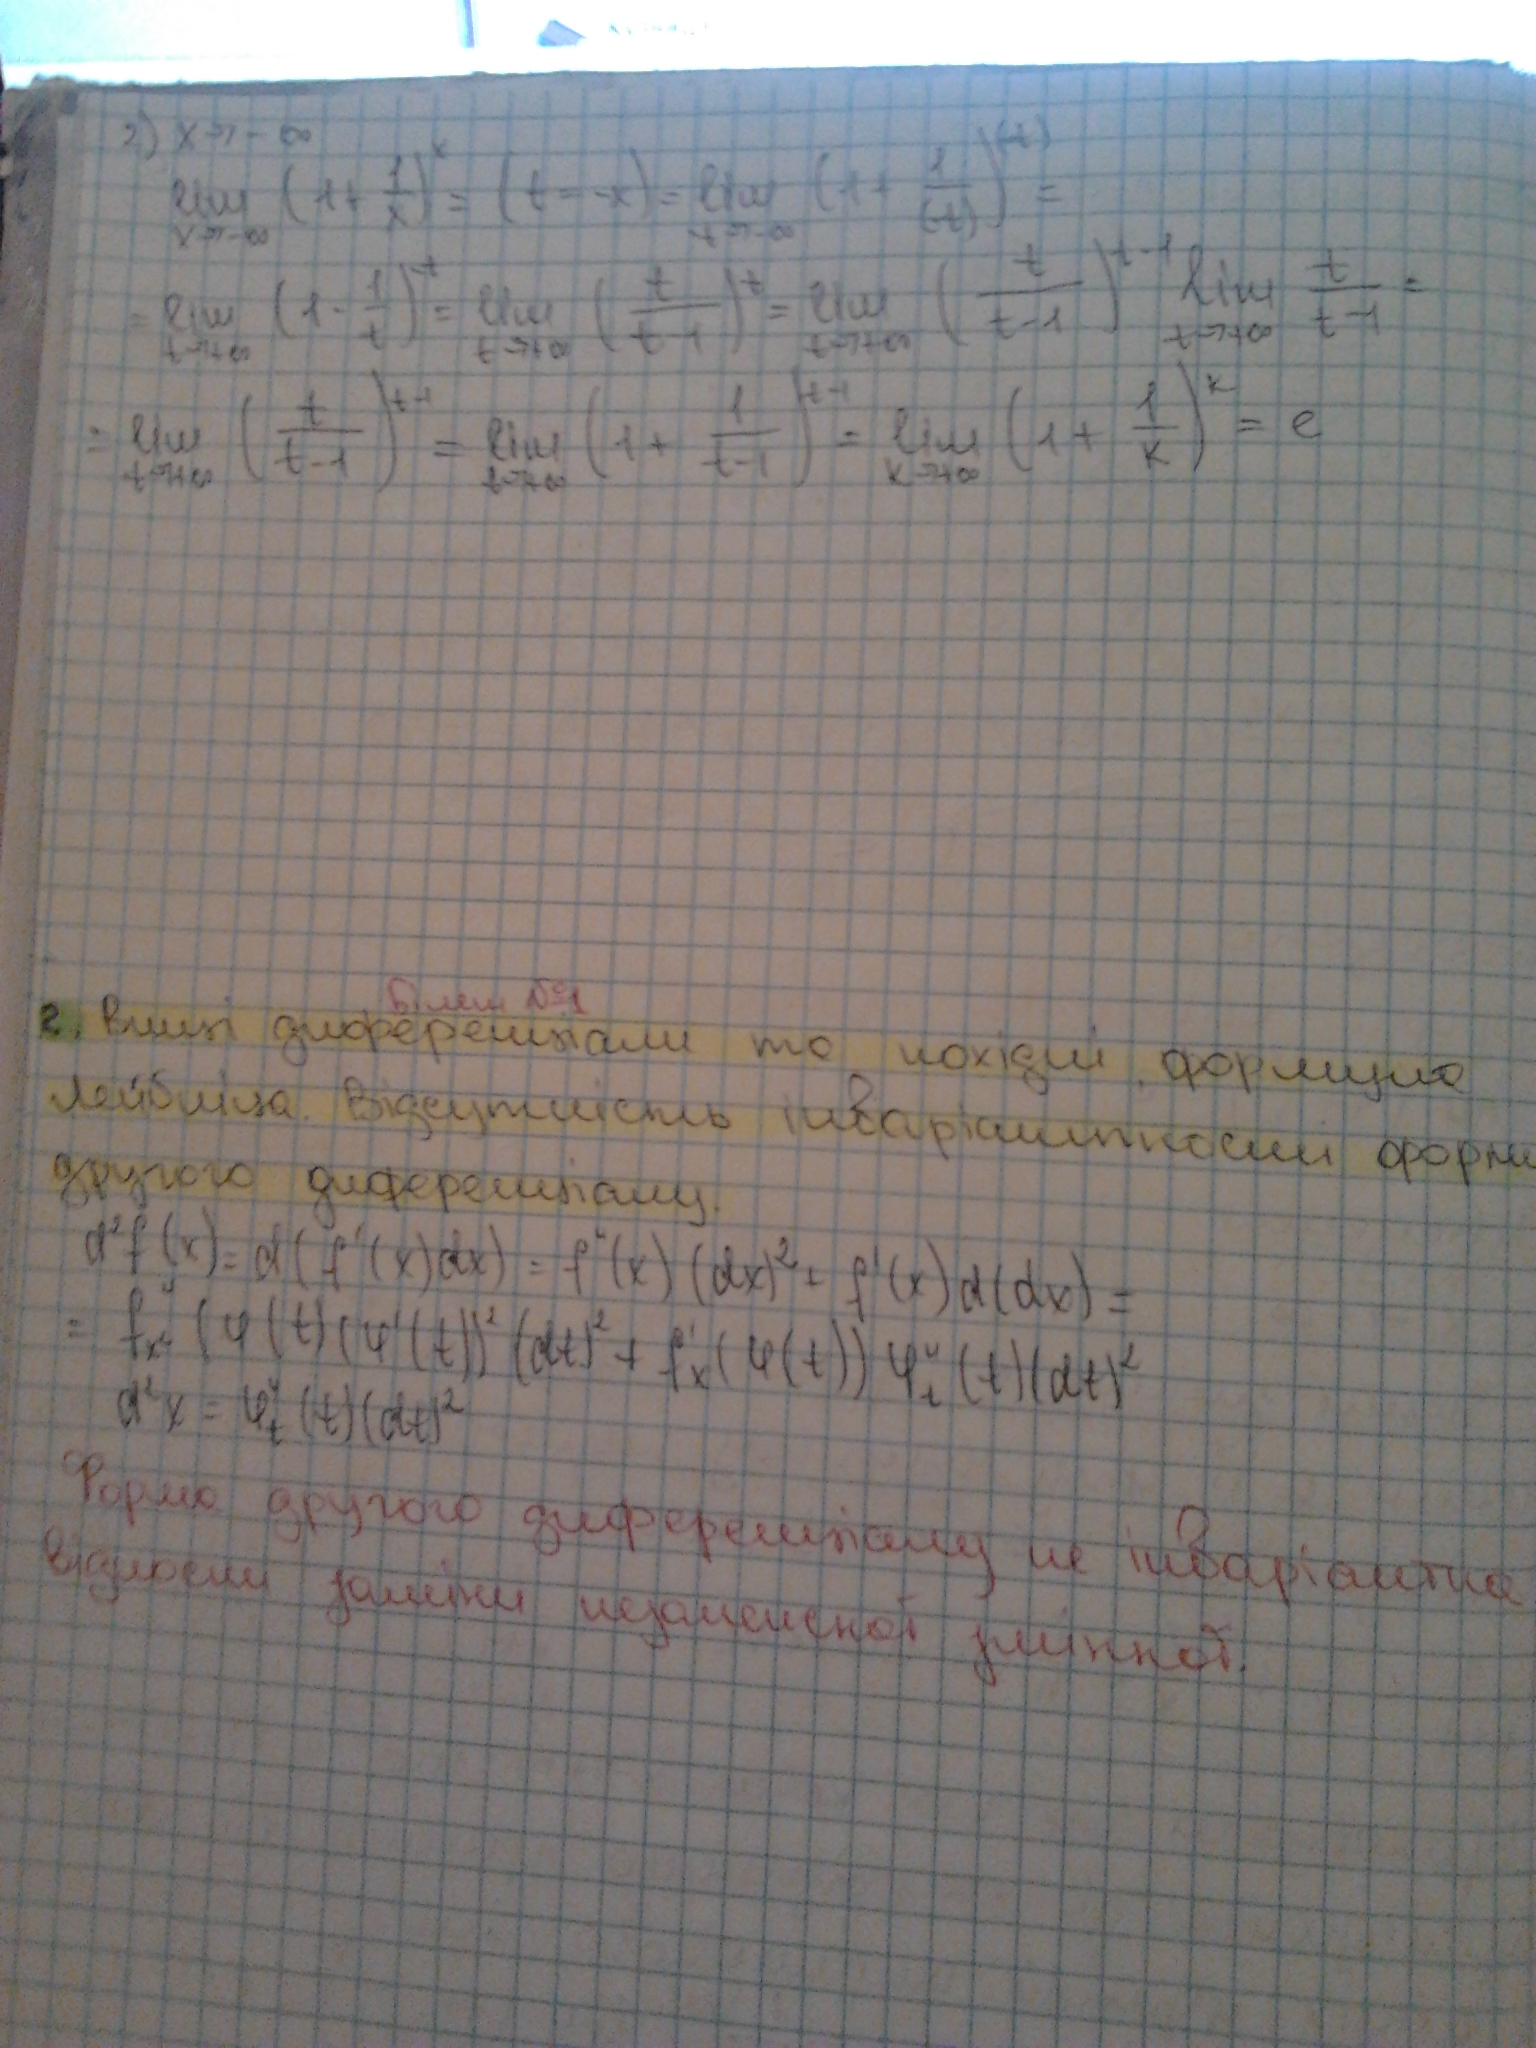 2) x→-∞
lim x→-∞ (1+1/x)^x = (t=-x) = lim t→-∞ (1+1/(-t))^(-t) =
= lim t→+∞ (1-1/t)^-t = lim t→+∞ (t/(t-1))^t = lim t→+∞ (t/(t-1))^(t-1) lim t→+∞ t/(t-1) =
= lim t→+∞ (t/(t-1))^(t-1) = lim t→+∞ (1+1/(t-1))^(t-1) = lim k→+∞ (1+1/k)^k = e
Білет №1
2. Вищі диференціали та похідні, формула
Лейбніца. Відсутність інваріантності форми
другого диференціалу.
d²f(x) = d(f'(x)dx) = f''(x)(dx)² + f'(x)d(dx) =
= f''x²(φ(t)(φ'(t))²(dt)² + f'x(φ(t))φ''t(t)(dt)²
d²x = φ''t(t)(dt)²
Форма другого диференціалу не інваріантна
відносни заміни незалежної змінної.